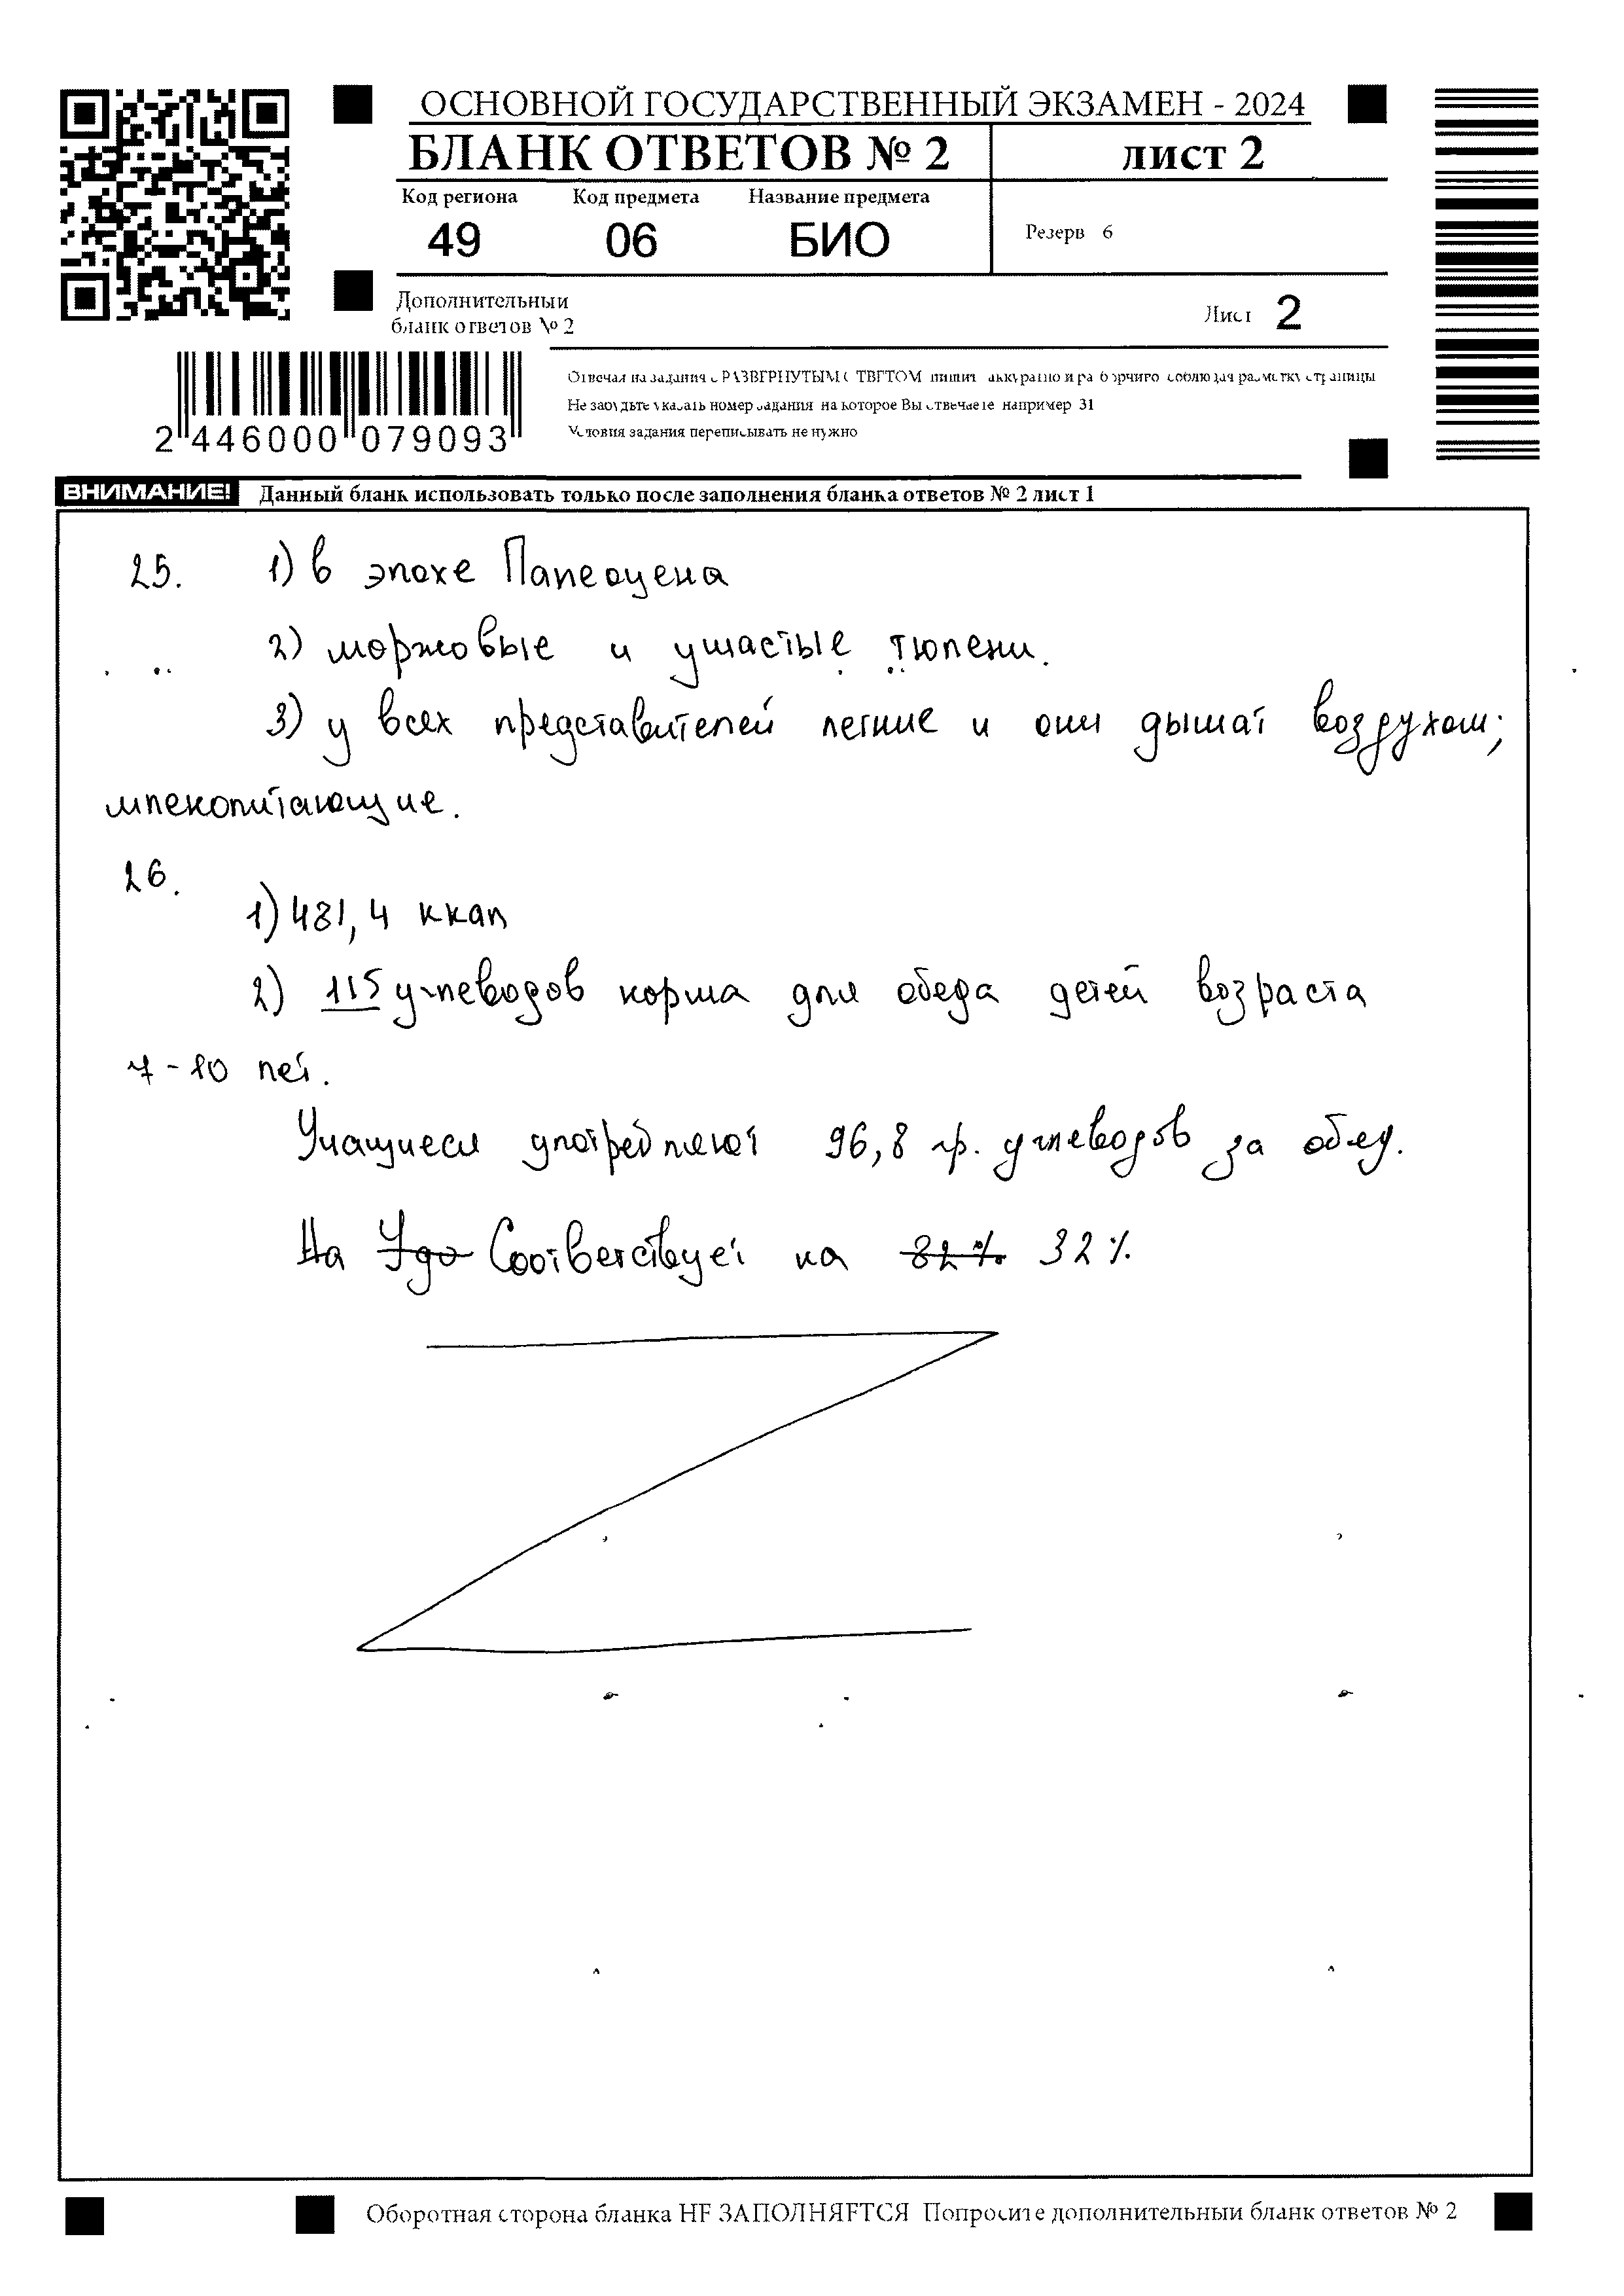 ОСНОВНОЙ ГОСУДАРСТВЕННЫЙ ЭКЗАМЕН - 2024
БЛАНК ОТВЕТОВ № 2
лист 2
Код региона Код предмета Название предмета
49 06 БИО
Резерв 6
Дополнительный
бланк ответов № 2
Лист 2
2 446000 079093
Отвечая на задания с РАЗВЕРНУТЫМ ОТВЕТОМ пишите аккуратно и разборчиво соблюдая разметку страницы
Не забудьте указать номер задания на которое Вы отвечаете например 31
Условия задания переписывать не нужно
ВНИМАНИЕ! Данный бланк использовать только после заполнения бланка ответов № 2 лист 1
25. 1) в эпохе Палеоцена
2) моржовые и ушастые тюлени.
3) у всех представителей легкие и они дышат воздухом;
млекопитающие.
26.
1) 481,4 ккал
2) 115 углеводов норма для обеда детей возраста
7-10 лет.
Учащиеся употребляют 96,8 гр. углеводов за обед.
На Удо Соответствует на 82% 32%.
Оборотная сторона бланка НЕ ЗАПОЛНЯЕТСЯ Попросите дополнительный бланк ответов № 2